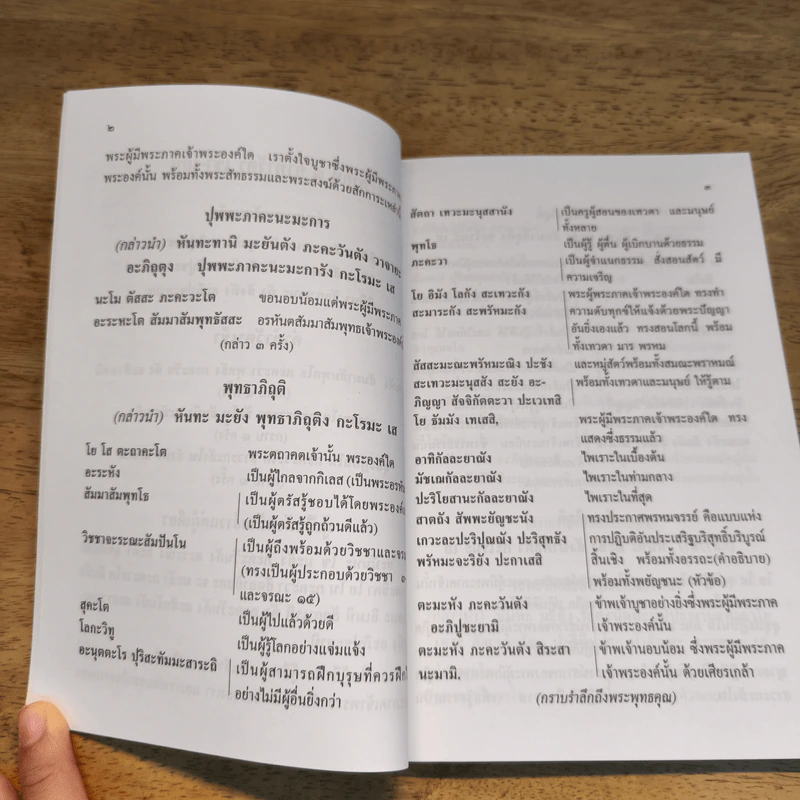 ๒
พระผู้มีพระภาคเจ้าพระองค์ใด เราตั้งใจบูชาซึ่งพระผู้มีพระภาค
พระองค์นั้น พร้อมทั้งพระสัทธรรมและพระสงฆ์ด้วยสักการะเหล่านี้
ปุพพะภาคะนะมะการ
(กล่าวนำ) หันทะทานิ มะยันตัง ภะคะวันตัง วาจายะ
อะภิถุตุง ปุพพะภาคะนะมะการัง กะโรมะ เส
นะโม ตัสสะ ภะคะวะโต ขอนอบน้อมแด่พระผู้มีพระภาค
อะระหะโต สัมมาสัมพุทธัสสะ อรหันตสัมมาสัมพุทธเจ้าพระองค์
(กล่าว ๓ ครั้ง)
พุทธาภิถุติ
(กล่าวนำ) หันทะ มะยัง พุทธาภิถุติง กะโรมะ เส
โย โส ตะถาคะโต พระตถาคตเจ้านั้น พระองค์ใด
อะระหัง เป็นผู้ไกลจากกิเลส (เป็นพระอรหัน
สัมมาสัมพุทโธ เป็นผู้ตรัสรู้ชอบได้โดยพระองค์
(เป็นผู้ตรัสรู้ถูกถ้วนดีแล้ว)
วิชชาจะระณะสัมปันโน เป็นผู้ถึงพร้อมด้วยวิชชาและจรณ
(ทรงเป็นผู้ประกอบด้วยวิชชา
และจรณะ ๑๕)
สุคะโต เป็นผู้ไปแล้วด้วยดี
โลกะวิทู เป็นผู้รู้โลกอย่างแจ่มแจ้ง
อะนุตตะโร ปุริสะทัมมะสาระถิ เป็นผู้สามารถฝึกบุรุษที่ควรฝึก
อย่างไม่มีผู้อื่นยิ่งกว่า
๓
สัตถา เทวะมะนุสสานัง เป็นครูผู้สอนของเทวดา และมนุษย์
ทั้งหลาย
พุทโธ เป็นผู้รู้ ผู้ตื่น ผู้เบิกบานด้วยธรรม
ภะคะวา เป็นผู้จำแนกธรรม สั่งสอนสัตว์ มี
ความเจริญ
โย อิมัง โลกัง สะเทวะกัง พระผู้มีพระภาคเจ้าพระองค์ใด ทรงทำ
สะมาระกัง สะพรัหมะกัง ความดับทุกข์ให้แจ้งด้วยพระปัญญา
อันยิ่งเองแล้ว ทรงสอนโลกนี้ พร้อม
ทั้งเทวดา มาร พรหม
สัสสะมะณะพรัหมะณิง ปะชัง และหมู่สัตว์พร้อมทั้งสมณะพราหมณ์
สะเทวะมะนุสสัง สะยัง อะ- พร้อมทั้งเทวดาและมนุษย์ ให้รู้ตาม
ภิญญา สัจฉิกัตตะวา ปะเวเทสิ
โย ธัมมัง เทเสสิ, พระผู้มีพระภาคเจ้าพระองค์ใด ทรง
แสดงซึ่งธรรมแล้ว
อาทิกัลละยาณัง ไพเราะในเบื้องต้น
มัชเฌกัลละยาณัง ไพเราะในท่ามกลาง
ปะริโยสานะกัลละยาณัง ไพเราะในที่สุด
สาตถัง สัพพะยัญชะนัง ทรงประกาศพรหมจรรย์ คือแบบแห่ง
เกวะละปะริปุณณัง ปะริสุทธัง การปฏิบัติอันประเสริฐบริสุทธิ์บริบูรณ์
พรัหมะจะริยัง ปะกาเสสิ สิ้นเชิง พร้อมทั้งอรรถะ(คำอธิบาย)
พร้อมทั้งพยัญชนะ (หัวข้อ)
ตะมะหัง ภะคะวันตัง ข้าพเจ้าบูชาอย่างยิ่งซึ่งพระผู้มีพระภาค
อะภิปูชะยามิ เจ้าพระองค์นั้น
ตะมะหัง ภะคะวันตัง สิระสา ข้าพเจ้านอบน้อม ซึ่งพระผู้มีพระภาค
นะมามิ. เจ้าพระองค์นั้น ด้วยเศียรเกล้า
(กราบรำลึกถึงพระพุทธคุณ)